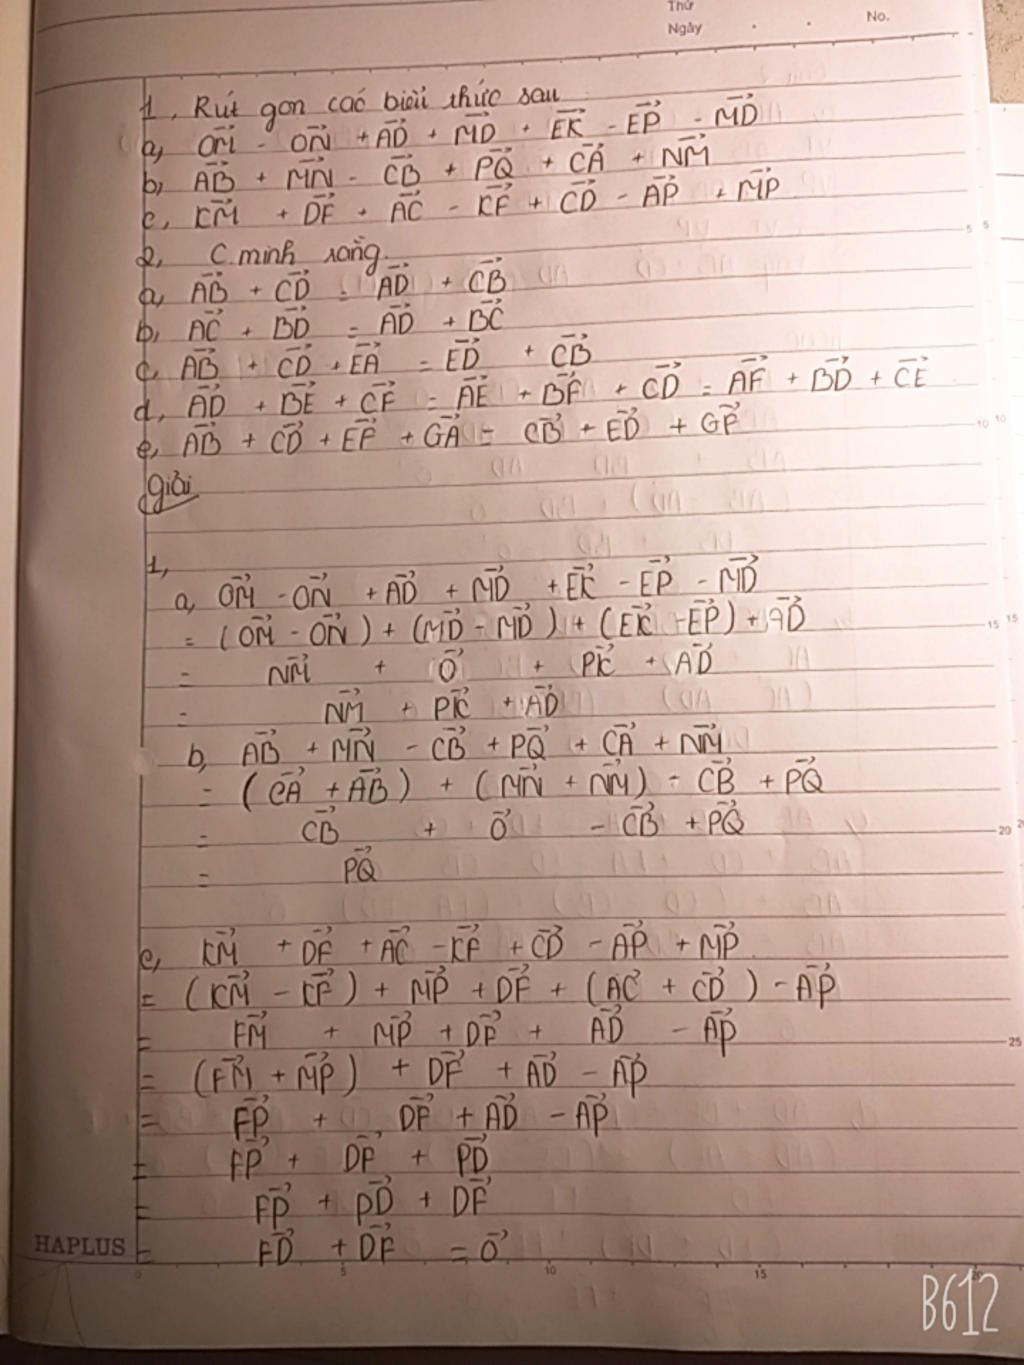 Thứ
Ngày . . No.
1, Rút gọn các biểu thức sau
a, OM⃗ - ON⃗ + AD⃗ + MD⃗ + EK⃗ - EP⃗ - MD⃗
b, AB⃗ + MN⃗ - CB⃗ + PQ⃗ + CA⃗ + NM⃗
c, KM⃗ + DF⃗ + AC⃗ - KF⃗ + CD⃗ - AP⃗ + MP⃗
2, C.minh rằng.
a, AB⃗ + CD⃗ = AD⃗ + CB⃗
b, AC⃗ + BD⃗ = AD⃗ + BC⃗
c, AB⃗ + CD⃗ + EA⃗ = ED⃗ + CB⃗
d, AD⃗ + BE⃗ + CF⃗ = AE⃗ + BF⃗ + CD⃗ = AF⃗ + BD⃗ + CE⃗
e, AB⃗ + CD⃗ + EF⃗ + GA⃗ = CB⃗ + ED⃗ + GF⃗
Giải
1,
a, OM⃗ - ON⃗ + AD⃗ + MD⃗ + EK⃗ - EP⃗ - MD⃗
= (OM⃗ - ON⃗) + (MD⃗ - MD⃗) + (EK⃗ - EP⃗) + AD⃗
= NM⃗ + O⃗ + PK⃗ + AD⃗
= NM⃗ + PK⃗ + AD⃗
b, AB⃗ + MN⃗ - CB⃗ + PQ⃗ + CA⃗ + NM⃗
= (CA⃗ + AB⃗) + (MN⃗ + NM⃗) - CB⃗ + PQ⃗
= CB⃗ + O⃗ - CB⃗ + PQ⃗
= PQ⃗
c, KM⃗ + DF⃗ + AC⃗ - KF⃗ + CD⃗ - AP⃗ + MP⃗
= (KM⃗ - KF⃗) + MP⃗ + DF⃗ + (AC⃗ + CD⃗) - AP⃗
= FM⃗ + MP⃗ + DF⃗ + AD⃗ - AP⃗
= (FM⃗ + MP⃗) + DF⃗ + AD⃗ - AP⃗
= FP⃗ + DF⃗ + AD⃗ - AP⃗
= FP⃗ + DF⃗ + PD⃗
= FP⃗ + PD⃗ + DF⃗
= FD⃗ + DF⃗ = O⃗
HAPLUS
0 5 10 15 20
B612